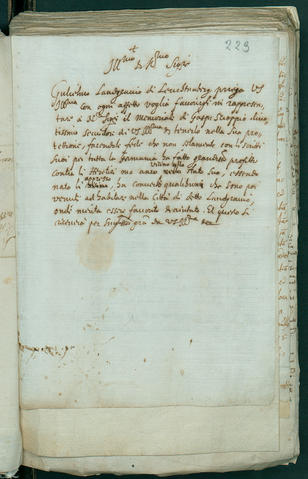 223
Ill.mo et R.mo Sig.re
Gulielmo Landgravio di prega VS
Ill.ma con ogni affetto voglia favorirsi di rappresen
tare à il Memoriale di Gasp. Scioppio divo
tissimo servitore di VS Ill.ma et tenerlo nella sua pro
tettione, facendole fede che non solamente con li scritti
suoi per tutta la Germania ha fatto grandissimo profitto
contra li Heretici, ma anco nello Stato suo, essendo
appresso
ha convertito qualcheduni che sono poi
venuti ad habitar nella Città di detto Landgravio,
onde merita esser favorito et aiutato. Et questo si
riceverà per gra. da VS Ill.ma